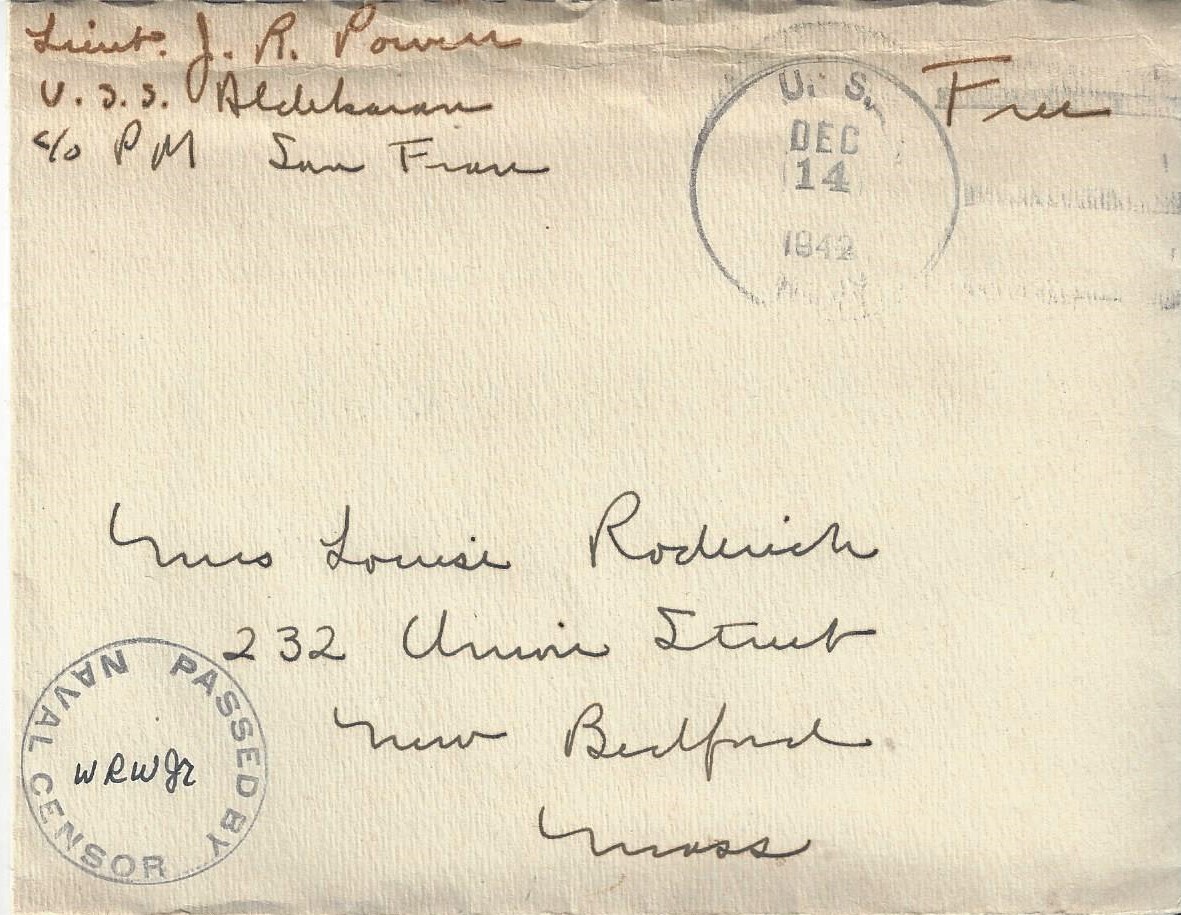 Lieut. J. R. Powers
U.S.S. Aldebaran
c/o PM San Fran
Free
U. S.
DEC
14
1942
Miss Louise Roderick
232 Union Street
New Bedford
Mass
PASSED BY
NAVAL CENSOR
WRWJr